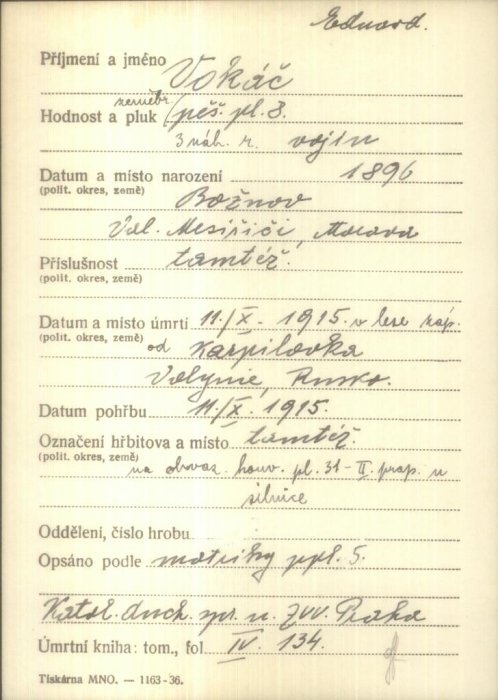 Eduard.
Příjmení a jméno Vokáč
zeměbr.
Hodnost a pluk pěš. pl. 3.
3 náh. r. vojín
Datum a místo narození 1896
(polit. okres, země) Božnov
Val. Mesiřičí, Morava
Příslušnost tamtéž.
(polit. okres, země)
Datum a místo úmrtí 11./X. 1915. v lese záp.
(polit. okres, země) od Karpilovka
Volynie, Rusko.
Datum pohřbu 11./X. 1915.
Označení hřbitova a místo tamtéž.
(polit. okres, země)
na obvaz. pl. 31 - II. prap. u
silnice
Oddělení, číslo hrobu
Opsáno podle matriky ppl. 5.
Katol. duch. spr. u. ZVV. Praha
Úmrtní kniha: tom., fol. IV. 134.
Tiskárna MNO. — 1163-36.